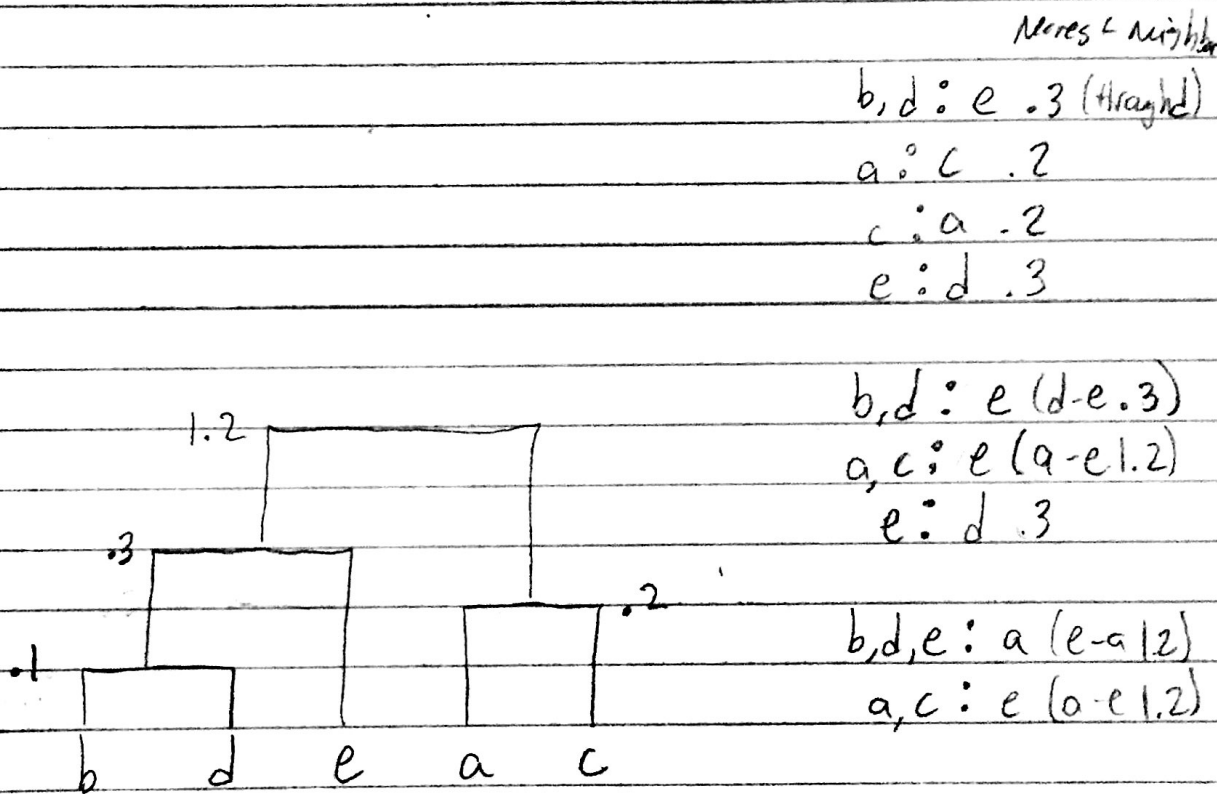 Nearest Neighbor
b,d : e .3 (through d)
a : c .2
c : a .2
e : d .3
b,d : e (d-e .3)
a,c : e (a-e 1.2)
e : d .3
b,d,e : a (e-a 1.2)
a,c : e (a-e 1.2)
1.2
.3
.2
.1
b d e a c